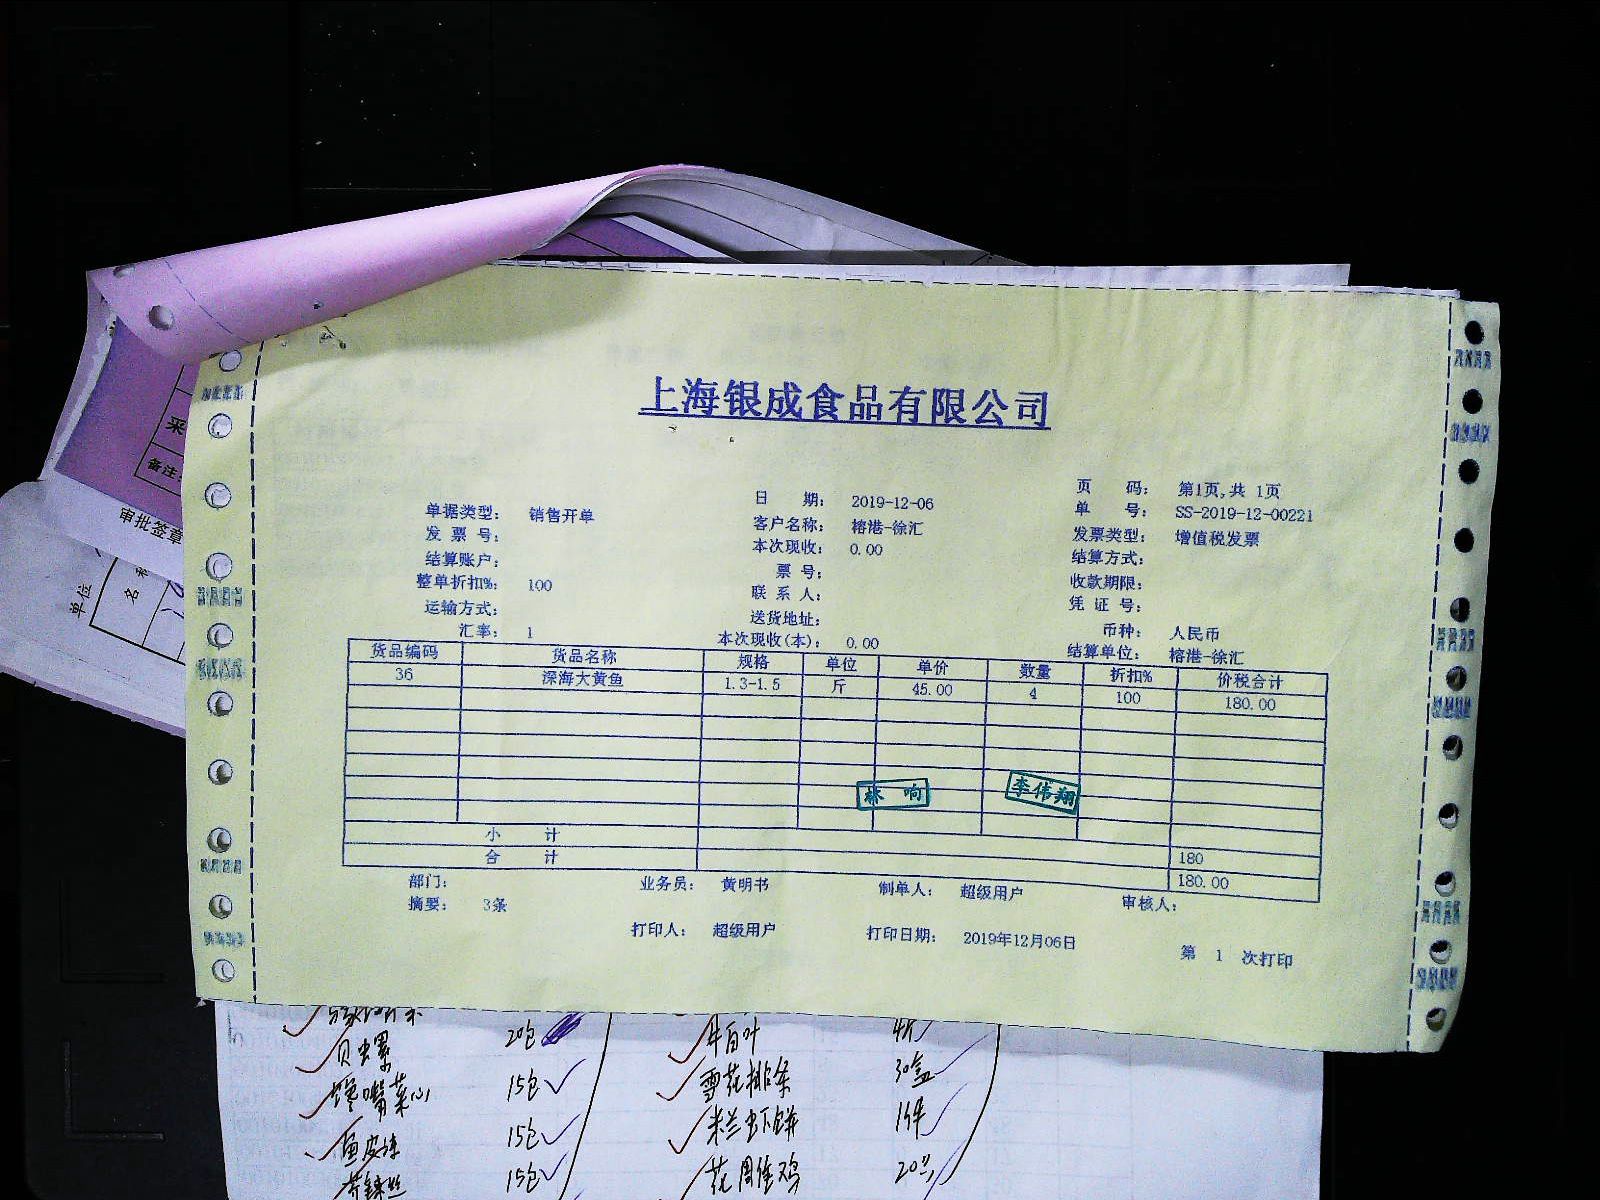 上海银成食品有限公司
页 码： 第1页,共 1页
日 期： 2019-12-06
单 号： SS-2019-12-00221
单据类型： 销售开单
客户名称： 榕港-徐汇
发票类型： 增值税发票
发 票 号：
本次现收： 0.00
结算方式：
结算账户：
票 号：
收款期限：
整单折扣%： 100
联 系 人：
凭 证 号：
运输方式：
送货地址：
币种： 人民币
汇率： 1
本次现收(本)： 0.00
结算单位： 榕港-徐汇
货品编码 货品名称 规格 单位 单价 数量 折扣% 价税合计
36 深海大黄鱼 1.3-1.5 斤 45.00 4 100 180.00
林 响 李伟翔
小 计 180
合 计 180.00
部门： 业务员： 黄明书 制单人： 超级用户 审核人：
摘要： 3条
打印人： 超级用户 打印日期： 2019年12月06日 第 1 次打印
采
备注
审批签章
单位
名
20包
牛百叶
贝虫累 15包 雪花排条 30盒
馋嘴菜心 15包 米兰虾饼 1件
鱼皮 15包